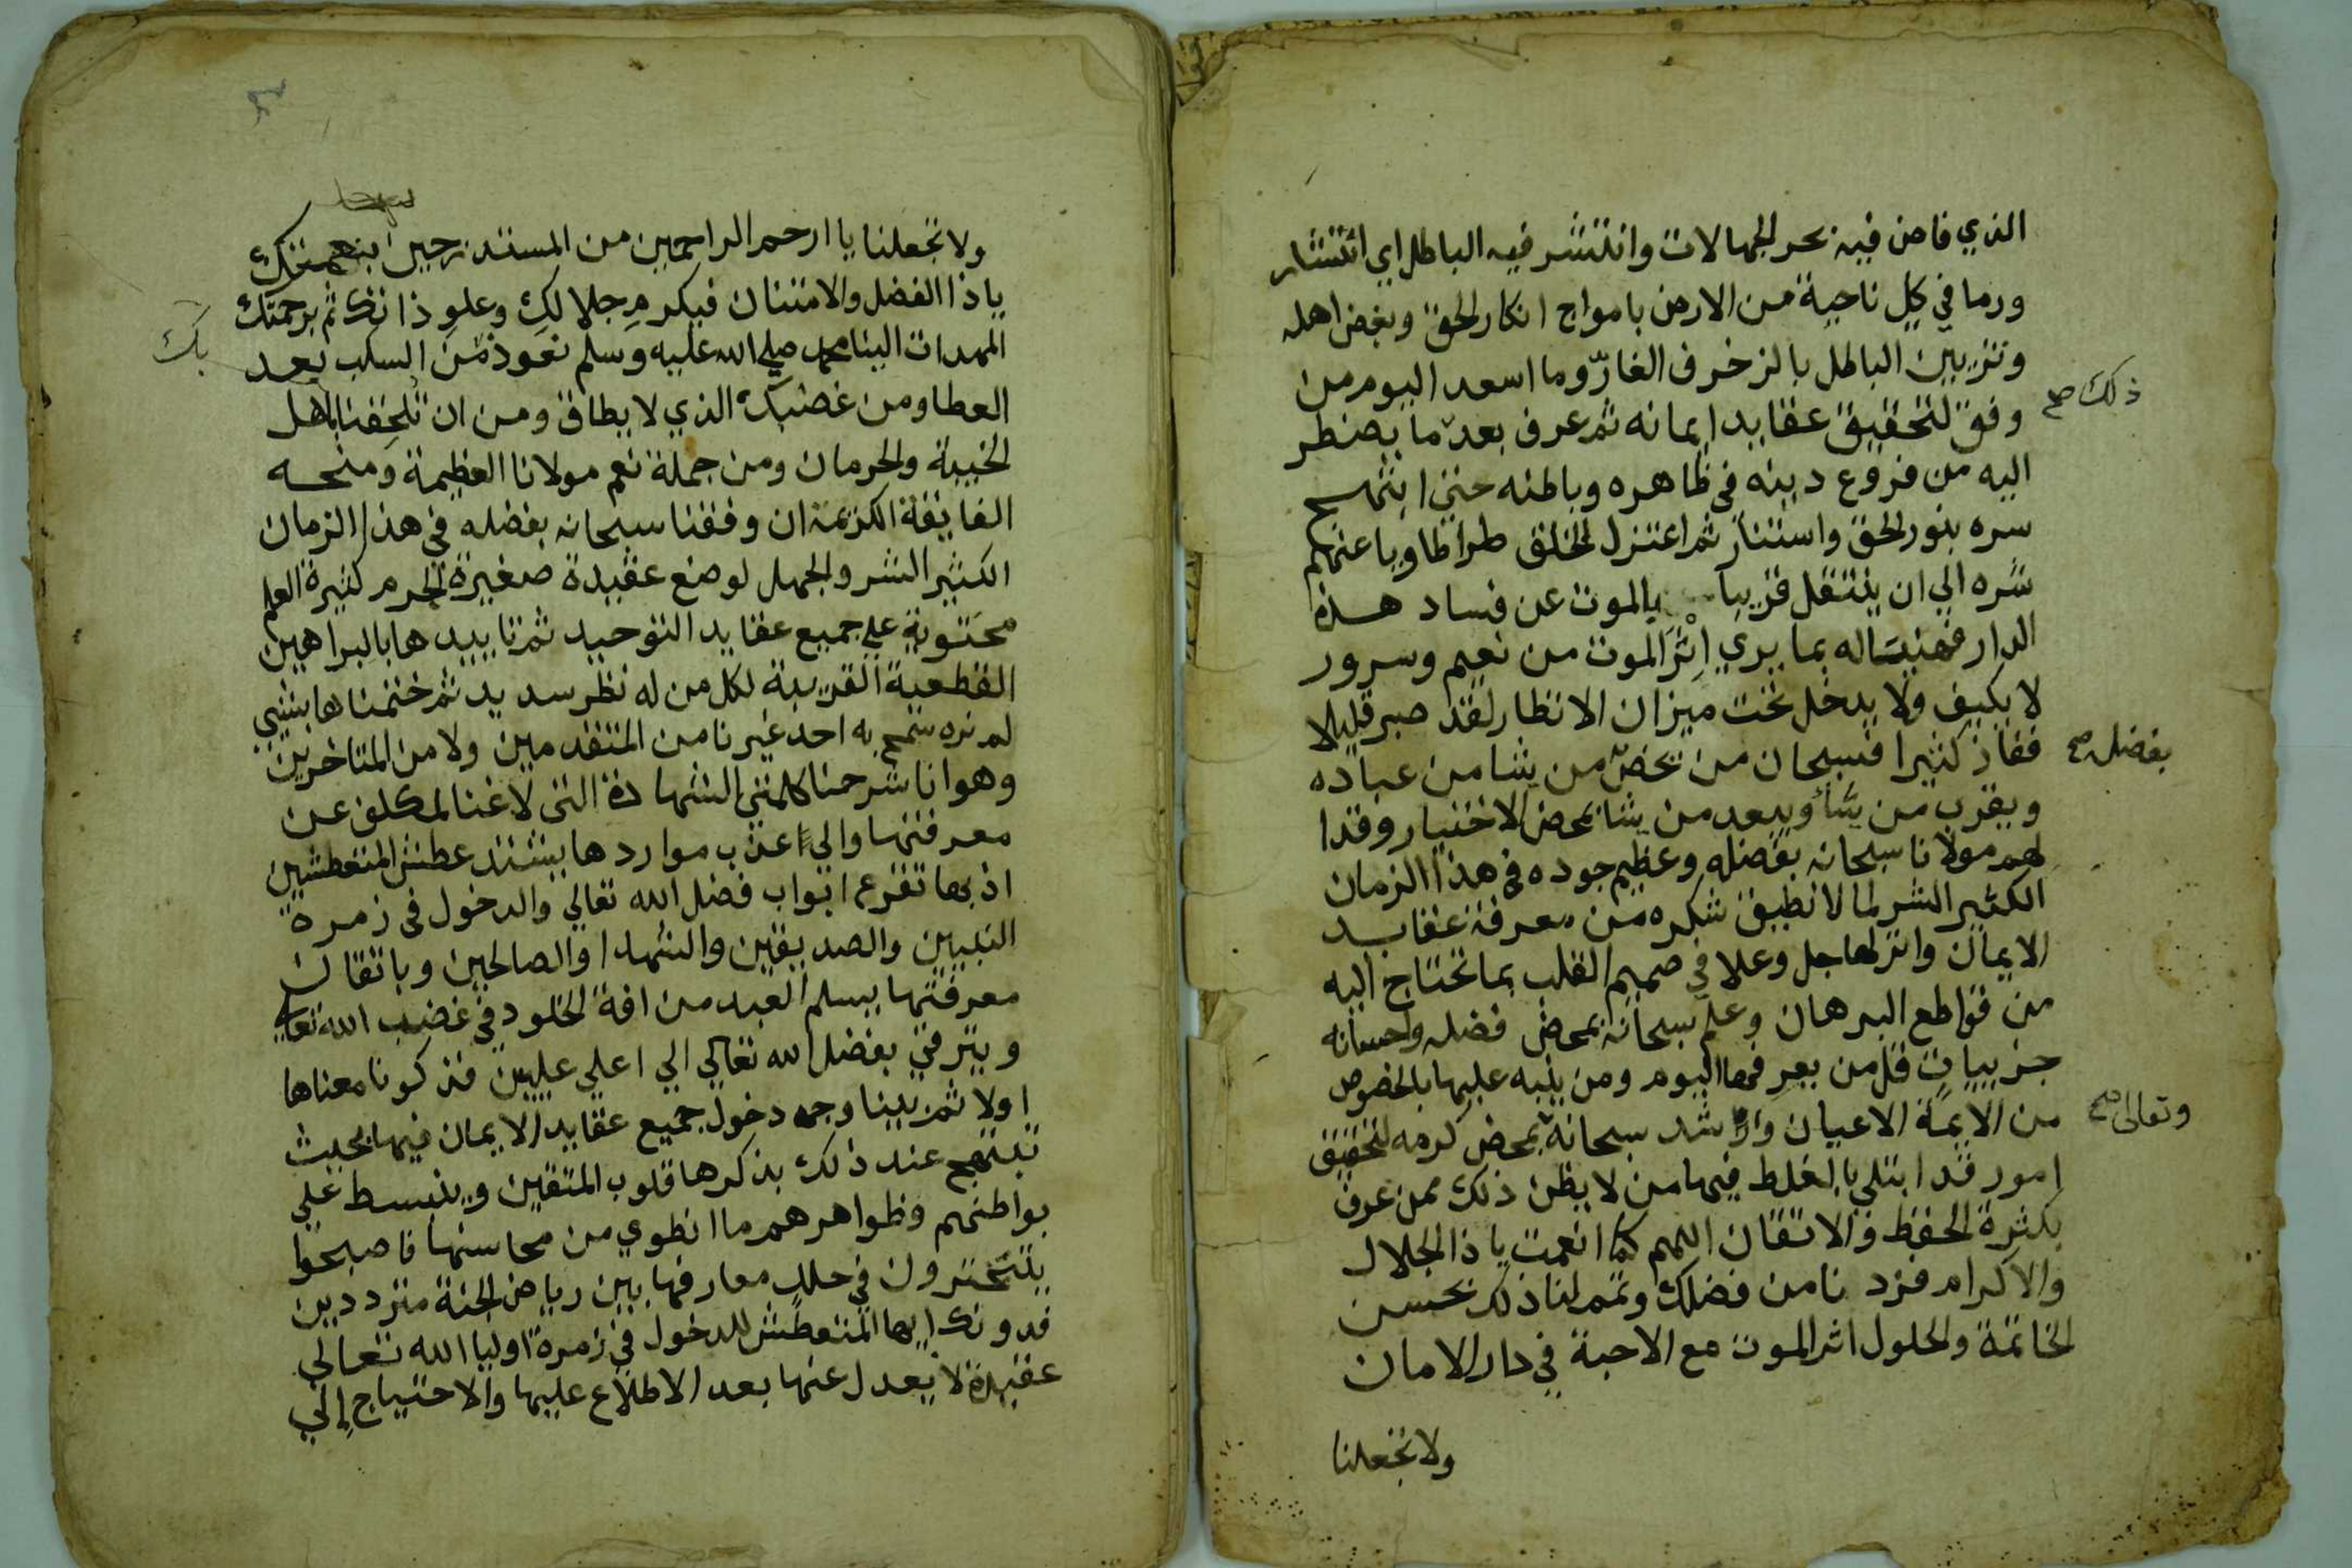 الذي فاض فيه بحر الجهالات وانتشر فيه الباطل اي انتشار
ورما في كل ناحية من الارض بامواج انكار الحق وبغض اهله
وتزيين الباطل بالزخرف الغارّ وما اسعد اليوم من
وفق لتحقيق عقايد ايمانه ثم عرف بعد ما يضطر
ذلك صح
اليه من فروع دينه في ظاهره وباطنه حتى ابتهج
سره بنور الحق واستنار ثم اعتزل الخلق طرا طاويا عنهم
شره الي ان ينتقل قريبا بالموت عن فساد هذه
الدار فهنيا له بما يري اثر الموت من نعيم وسرور
لا يكيف ولا يدخل تحت ميزان الانظار لقد صبر قليلا
ففاز كثيرا فسبحان من يخص من يشا من عباده
بفضله صح
ويقرب من يشا ويبعد من يشا بمحض الاختيار وقد ا
لهم مولانا سبحانه بفضله وعظيم جوده في هذا الزمان
الكثير الشر لما لا نطيق شكره من معرفة عقايد
الايمان وانزلها جل وعلا في صميم القلب بما تحتاج اليه
من قواطع البرهان وعلم سبحانه بمحض فضله واحسانه
جزييات قل من يعرفها اليوم ومن ينبه عليها بالخصوص
من الايمة الاعيان وارشد سبحانه بمحض كرمه لتحقيق
وتعالى صح
امور قد ابتلي بالغلط فيها من لا يظن ذلك ممن عرف
بكثرة الحفظ والاتقان اللهم كما انعمت يا ذا الجلال
والاكرام فزد نا من فضلك وتمم لنا ذلك بحسن
الخاتمة والحلول اثر الموت مع الاحبة في دار الامان
ولا تجعلنا
ولا تجعلنا يا ارحم الراحمين من المستدرجين بنعمتك
يا ذا الفضل والامتنان فبكرم جلالك وعلو ذاتك ثم برحمتك
المهدات الينا محمد صلي الله عليه وسلم نعوذ من السلب بعد
بك
العطا ومن غضبك الذي لا يطاق ومن ان تلحقنا باهل
الخيبة والحرمان ومن جملة نعم مولانا العظيمة ومنحه
الفايقة الكريمة ان وفقنا سبحانه بفضله في هذا الزمان
الكثير الشر والجهل لوضع عقيدة صغيرة الجرم كثيرة العلم
محتوية علي جميع عقايد التوحيد ثم تاييدها بالبراهين
القطعية القريبة لكل من له نظر سديد ثم ختمناها بشي
لم نره سمح به احد غيرنا من المتقدمين ولا من المتاخرين
وهو انا شرحنا كلمتي الشهادة التي لا غنا لمكلف عن
معرفتها والي اعذب مواردها يشتد عطش المتعطشين
اذ بها تقرع ابواب فضل الله تعالي والدخول في زمرة
النبيين والصديقين والشهدا والصالحين وباتقان
معرفتها يسلم العبد من افة الخلود في غضب الله تعالي
ويترقي بفضل الله تعالي الي اعلي عليين فذكرنا معناها
اولا ثم بينا وجه دخول جميع عقايد الايمان فيها بحيث
تبتهج عند ذلك بذكرها قلوب المتقين وينبسط علي
بواطنهم وظواهرهم ما انطوي من محاسنها فاصبحوا
يتبخترون في حلل معارفها بين رياض الجنة مترددين
فدونك ايها المتعطش للدخول في زمرة اوليا الله تعالي
عقيدة لا يعدل عنها بعد الاطلاع عليها والاحتياج إلي